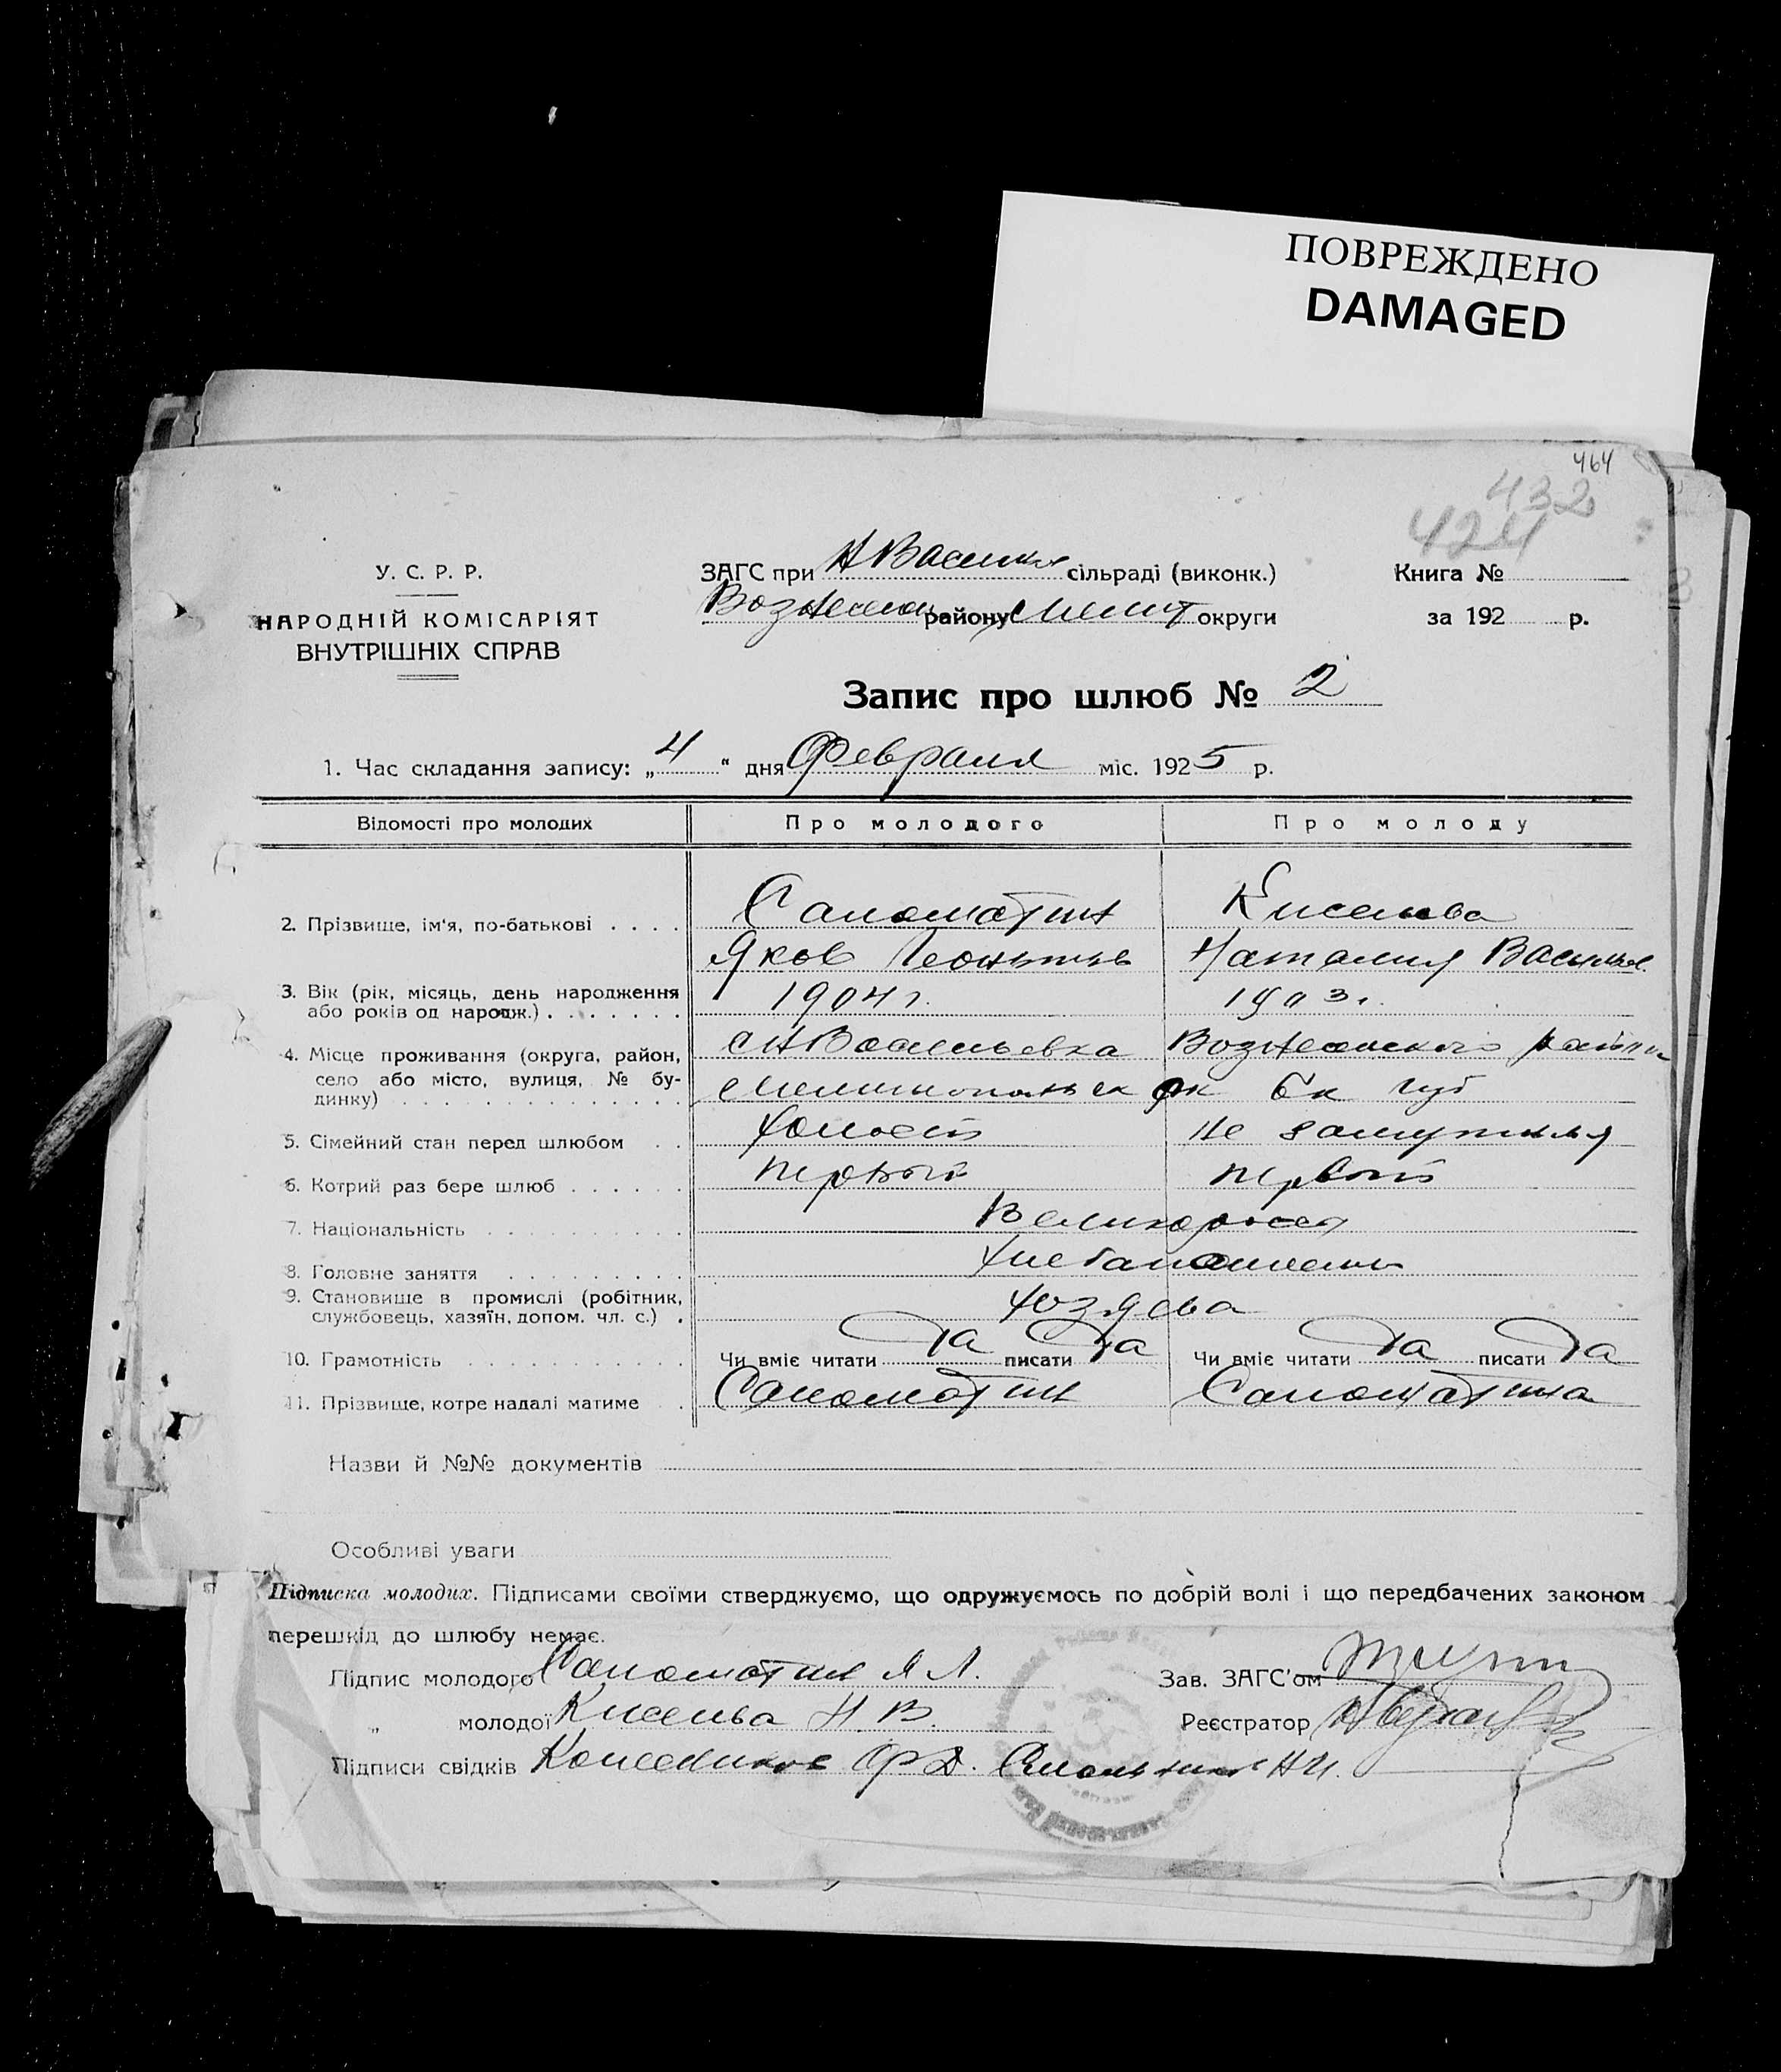 ПОВРЕЖДЕНО
DAMAGED
464
432
424
У. С. Р. Р.
НАРОДНІЙ КОМІСАРІЯТ
ВНУТРІШНІХ СПРАВ
ЗАГС при НВасильев сільраді (виконк.)
Вознесен району Мелит округи
Книга №
за 192 р.
Запис про шлюб № 2
1. Час складання запису: „4“ дня Февраля міс. 1925 р.
Відомості про молодих Про молодого Про молоду
2. Прізвище, ім'я, по-батькові . . . . Саломатин Киселева
Яков Леонтьев Наталия Васильев.
3. Вік (рік, місяць, день народження 1904 г. 1903 г.
або років од народж.) . . . . . . .
4. Місце проживання (округа, район, с НВасильевка Вознесенского района
село або місто, вулиця, № бу-
динку) . . . . . . . . . . . . . . Мелитопольск ок Ек губ
5. Сімейний стан перед шлюбом . . Холост не замужняя
6. Котрий раз бере шлюб . . . . . . первый первый
7. Національність . . . . . . . . . . Великоросы
8. Головне заняття . . . . . . . . . Хлебопашество
9. Становище в промислі (робітник,
службовець, хазяїн, допом. чл. с.) . хозяева
10. Грамотність . . . . . . . . . . . Чи вміє читати Да писати Да Чи вміє читати Да писати Да
11. Прізвище, котре надалі матиме . . Саломатин Саломатина
Назви й №№ документів
Особливі уваги
Підписка молодих. Підписами своїми стверджуємо, що одружуємось по добрій волі і що передбачених законом
перешкід до шлюбу немає.
Підпис молодого Саломатин Я Л. Зав. ЗАГС'ом
„ молодої Киселева Н. В. Реєстратор
Підписи свідків Колесников Ф Д. Н И.